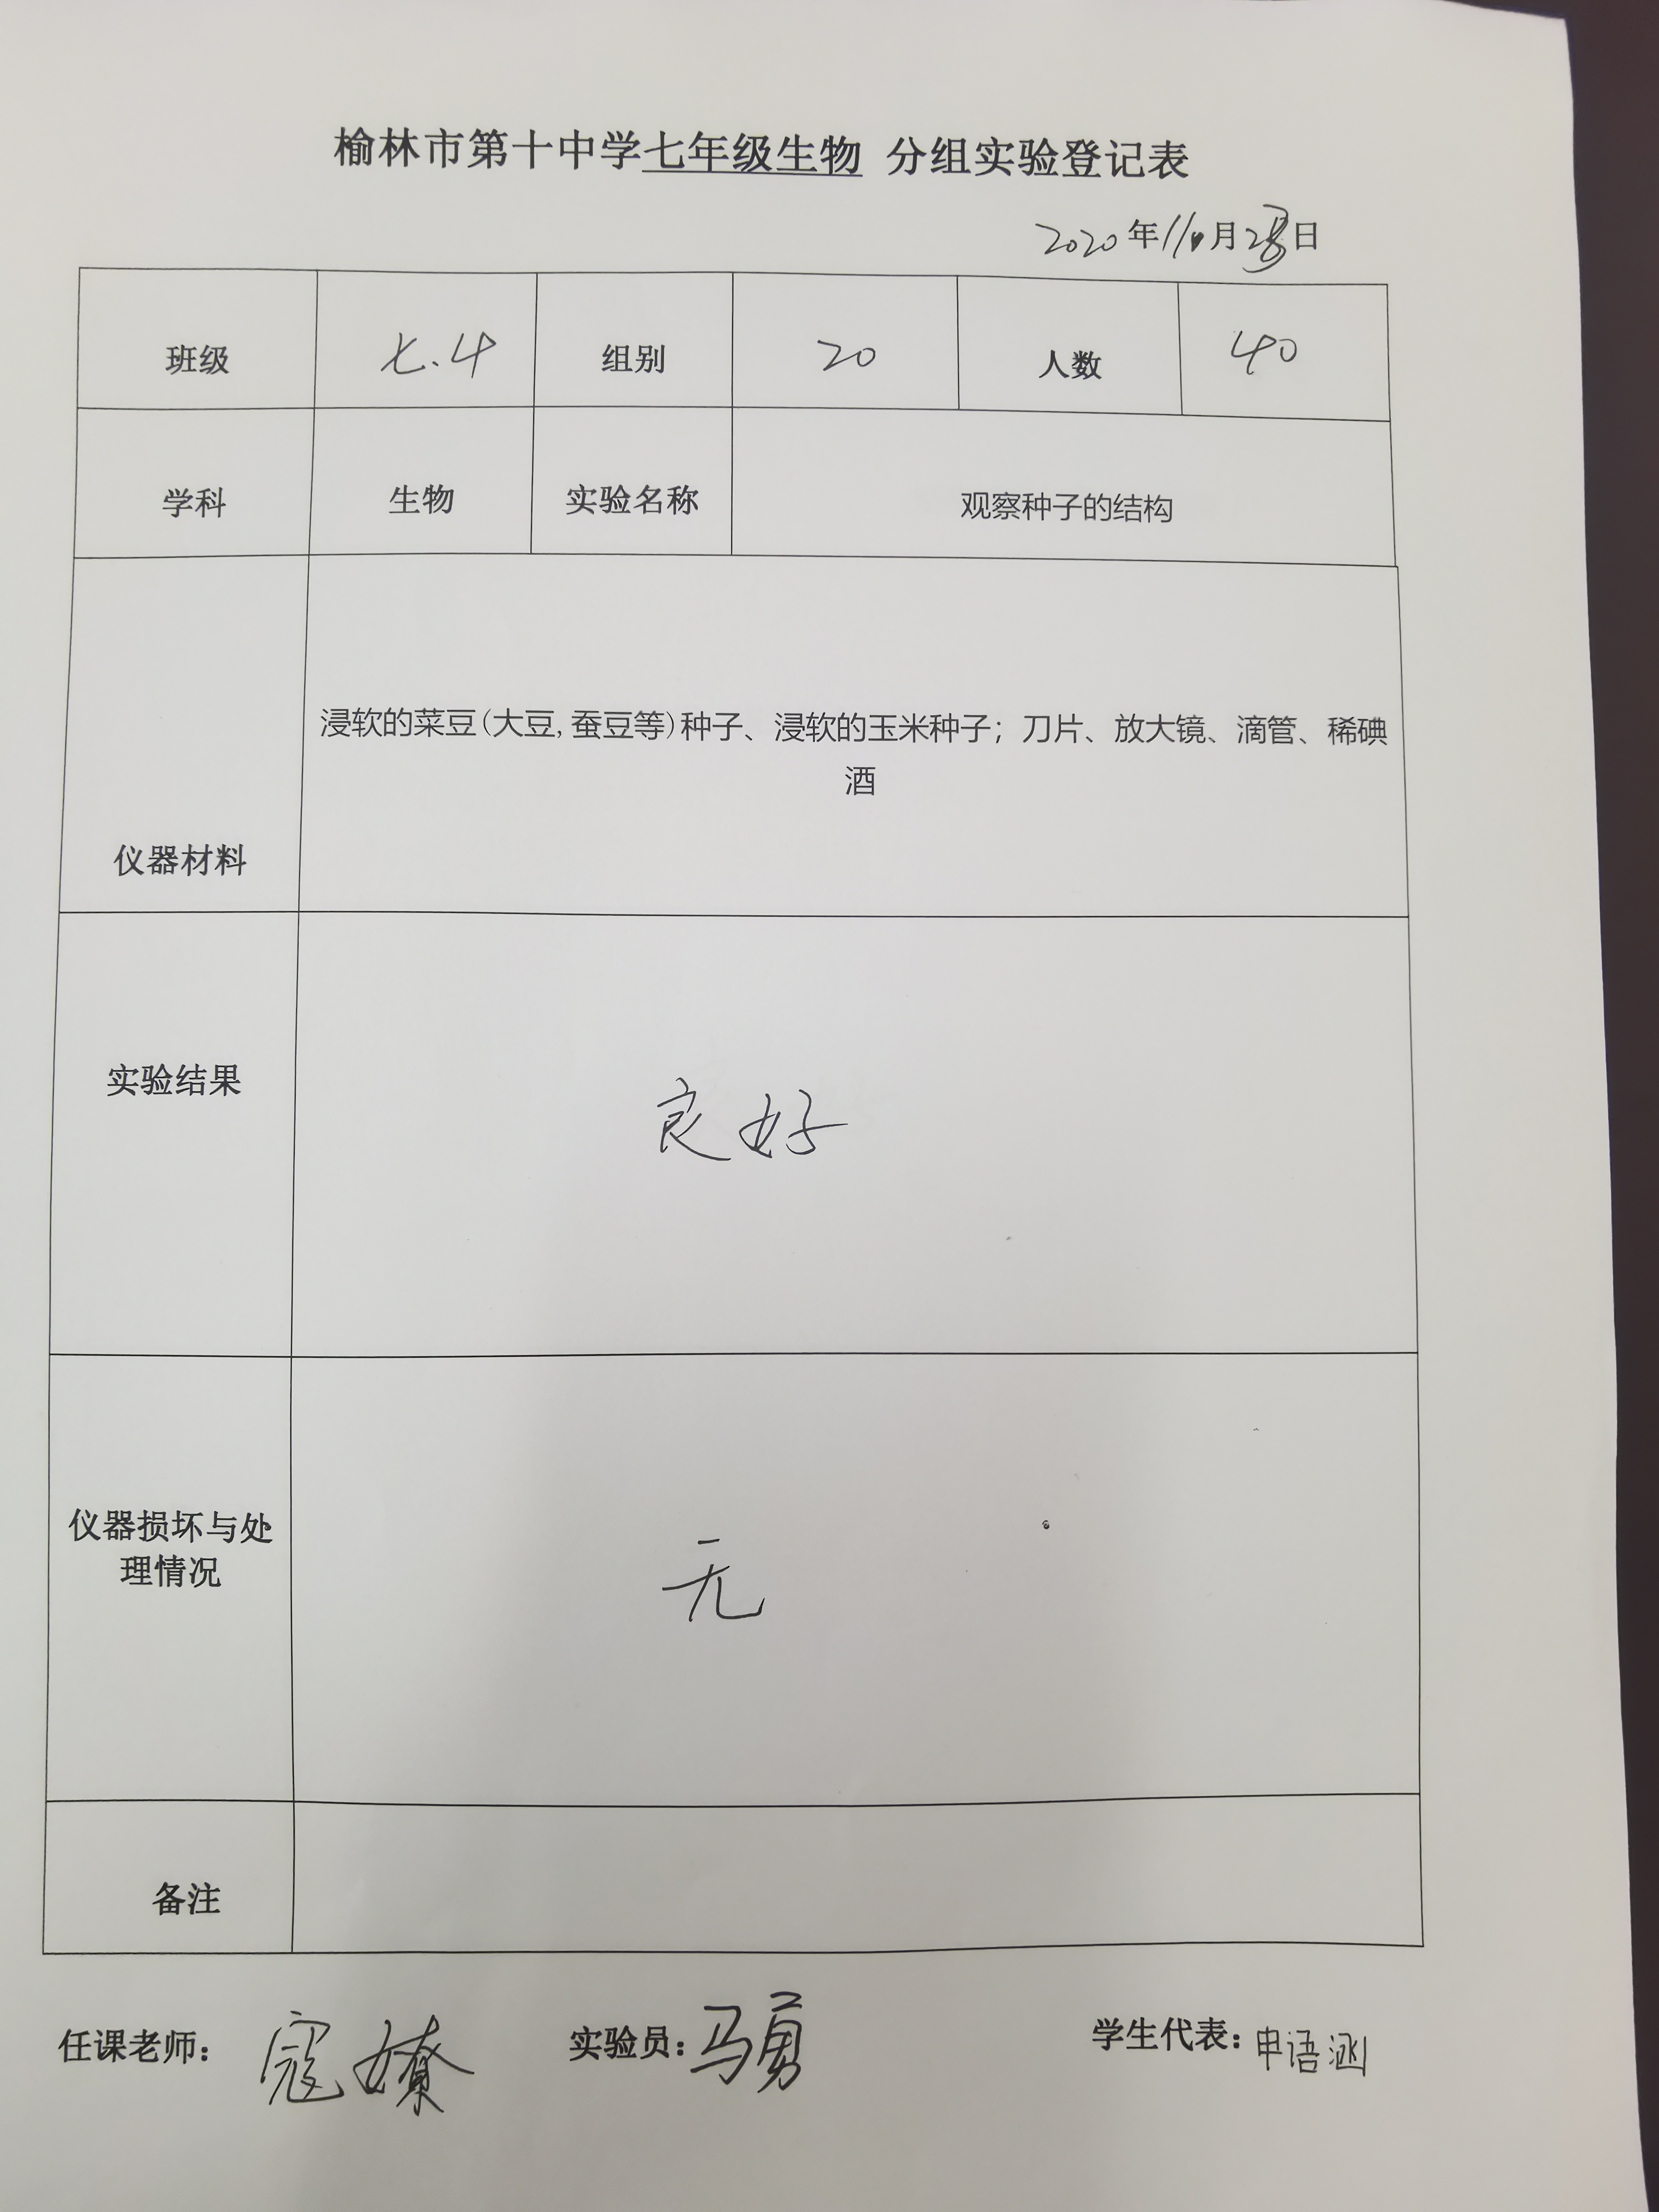 榆林市第十中学七年级生物 分组实验登记表
2020年11月日
班级 七.4 组别 20 人数 40
学科 生物 实验名称 观察种子的结构
浸软的菜豆(大豆,蚕豆等)种子、浸软的玉米种子；刀片、放大镜、滴管、稀碘
酒
仪器材料
实验结果 良好
仪器损坏与处
理情况
无
备注
任课老师： 寇 实验员：马勇 学生代表：申语涵